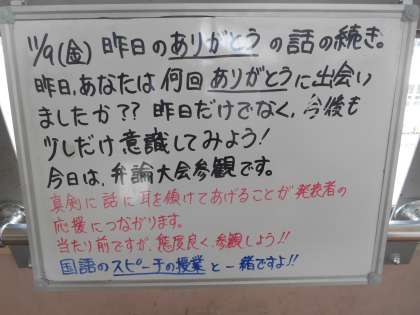 11/9(金) 昨日のありがとうの話の続き。
昨日、あなたは何回ありがとうに出会い
ましたか?? 昨日だけでなく、今後も
少しだけ意識してみよう!
今日は、弁論大会参観です。
真剣に話に耳を傾けてあげることが発表者の
応援につながります。
当たり前ですが、態度良く、参観しよう!!
国語のスピーチの授業と一緒ですよ!!